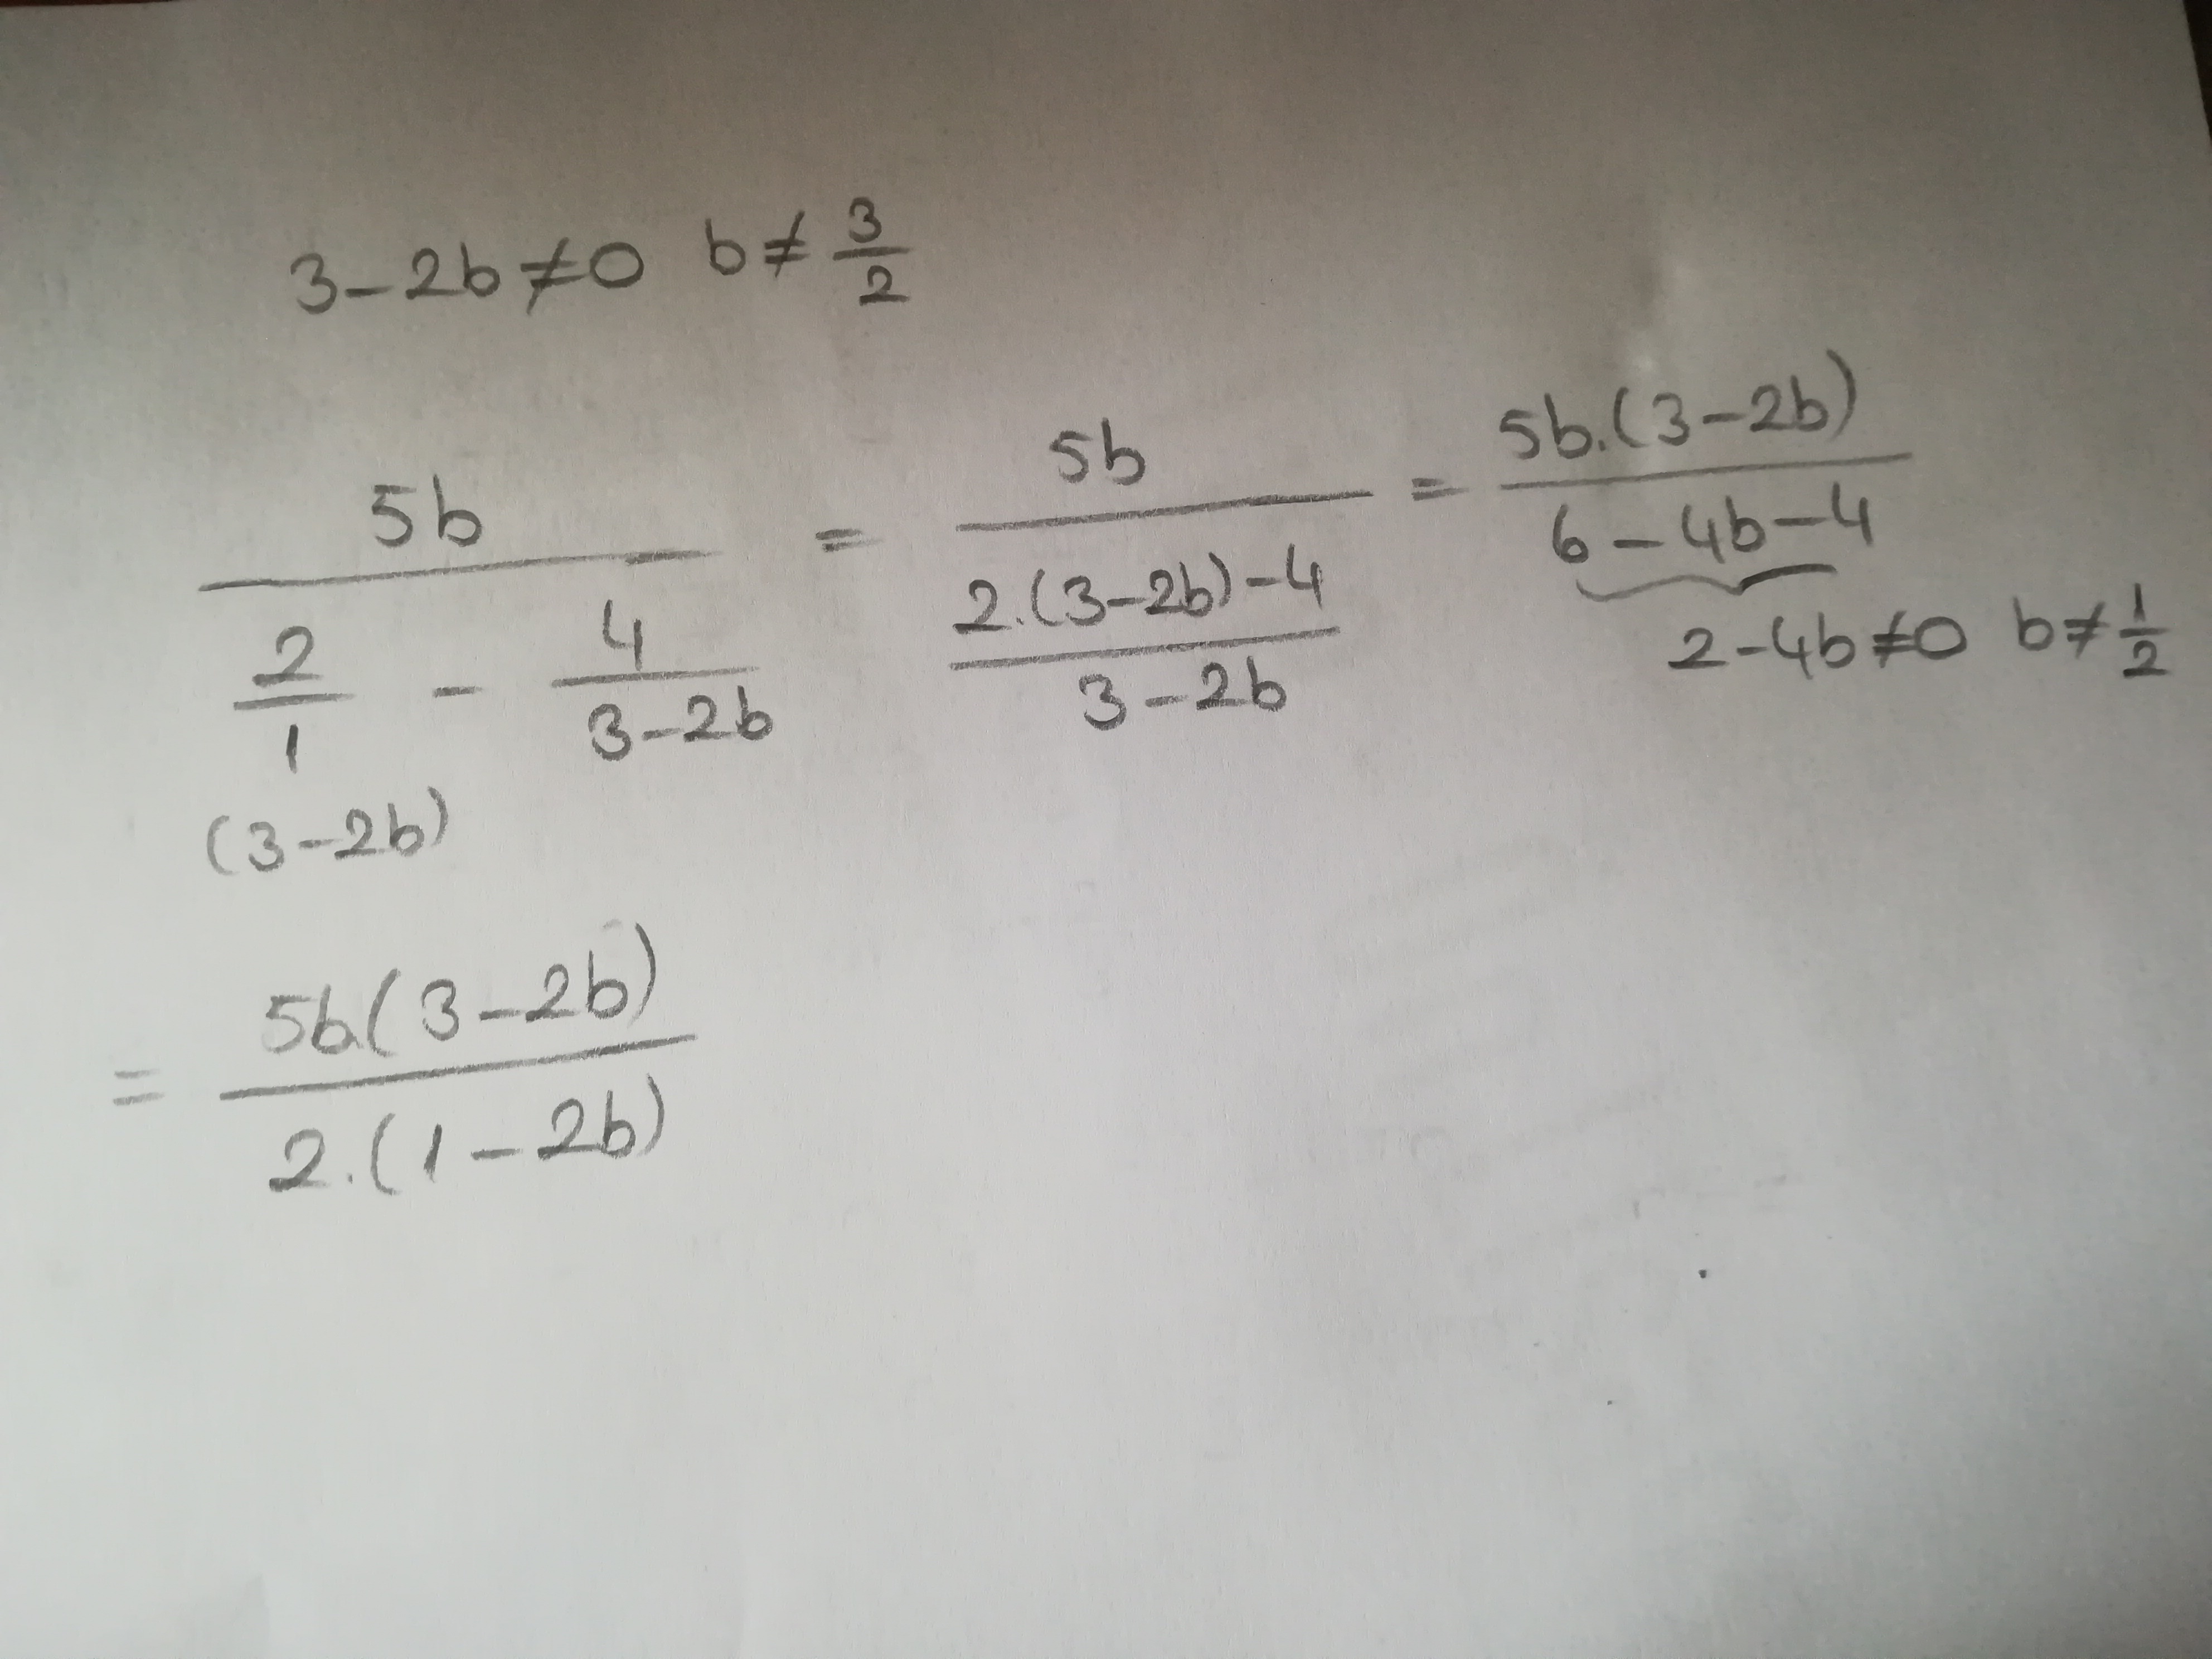 3-2b≠0 b≠3/2
5b / (2/1 - 4/(3-2b)) = 5b / ((2.(3-2b)-4)/(3-2b)) = 5b.(3-2b) / (6-4b-4)
2-4b≠0 b≠1/2
(3-2b)
= 5b.(3-2b) / (2.(1-2b))